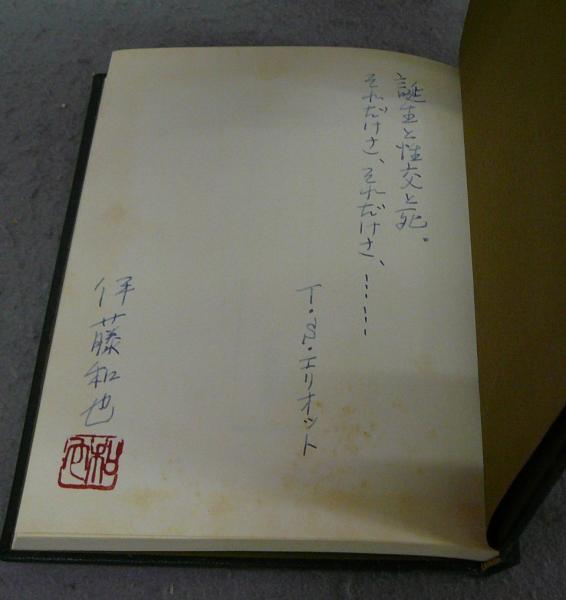 誕生と性交と死。
それだけさ、それだけさ、……
T・S・エリオット
伊藤和也
和也